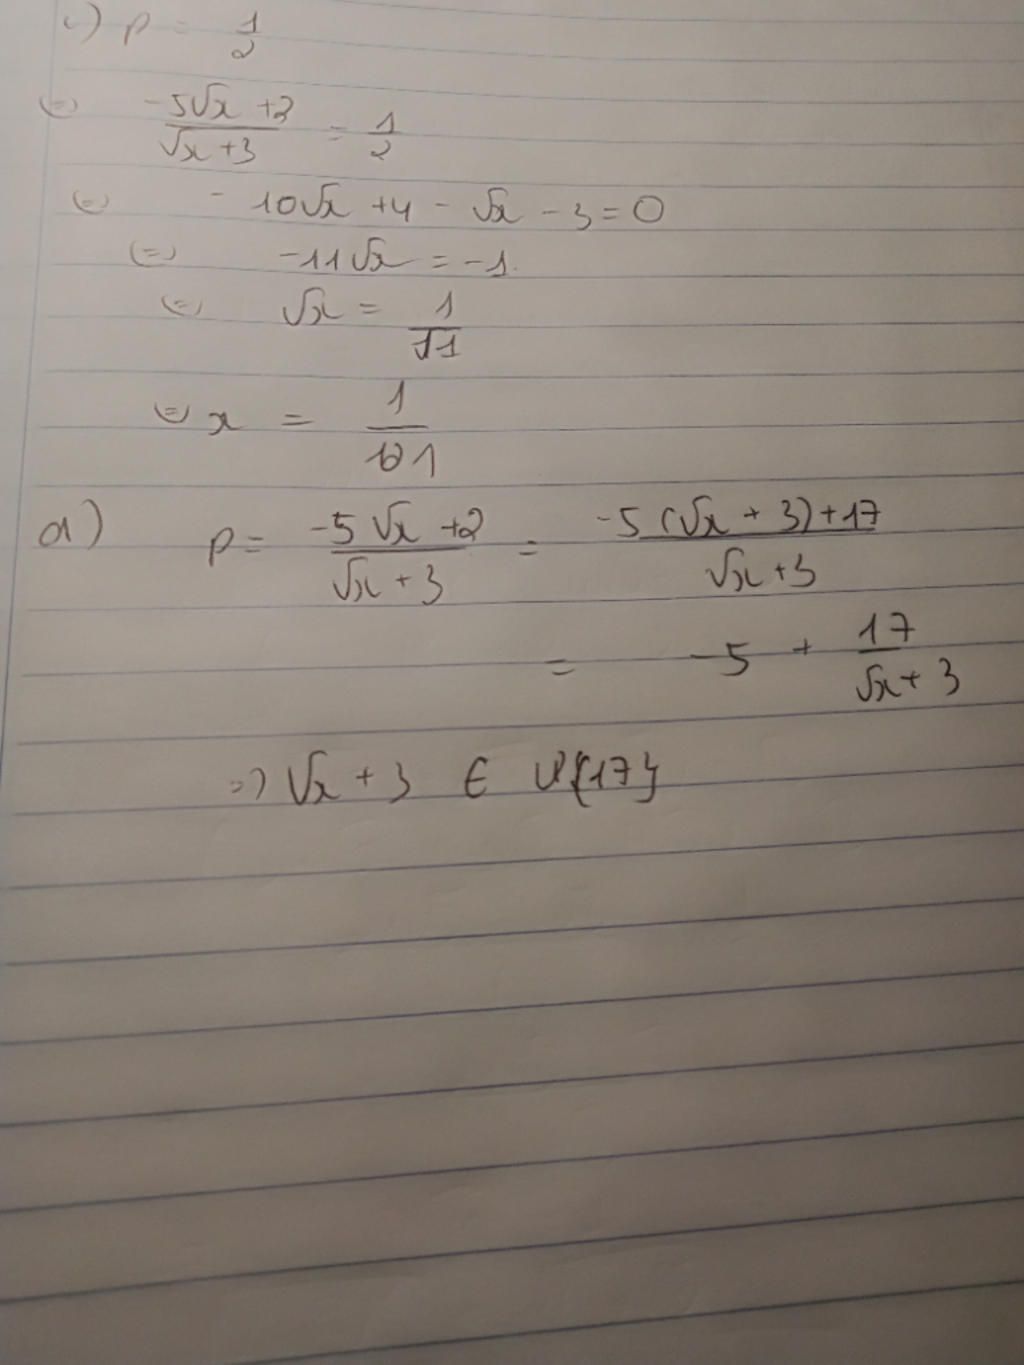 c) P = 1/2
(=) (-5√x +2)/(√x +3) = 1/2
(=) -10√x +4 - √x - 3 = 0
(=) -11√x = -1
(=) √x = 1/11
(=) x = 1/121
d) P = (-5√x +2)/(√x + 3) = (-5(√x + 3) + 17)/(√x +3)
= -5 + 17/(√x + 3)
=) √x + 3 ∈ Ư{17}